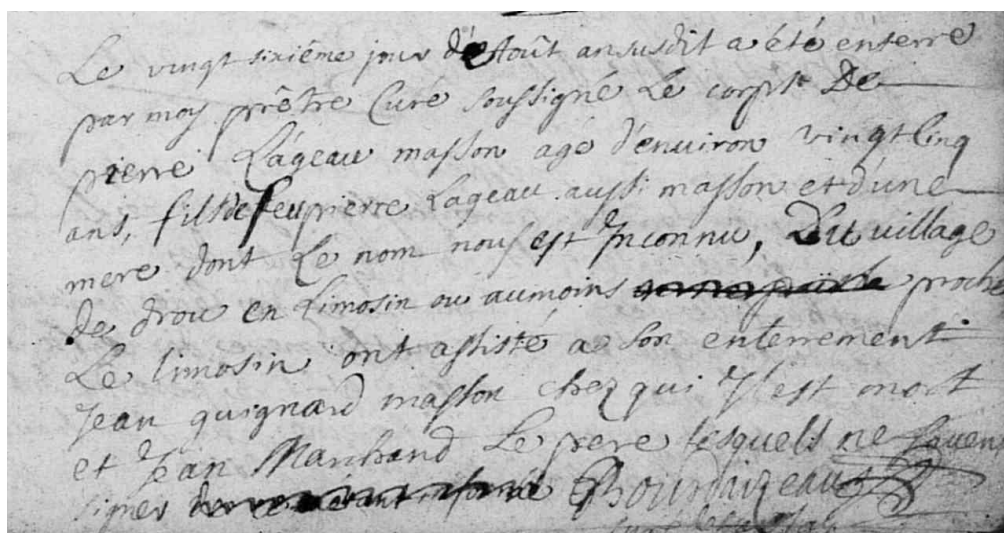 Le vingt sixiême jour d'Août an susdit a été enterré
par moy prêtre Curé soussigné Le corps De
pierre Lageau masson agé d'environ vingt cinq
ans, fils de feu pierre Lageau aussi masson et d'une
mere dont Le nom nous est Inconnu, Du village
de drou en Limosin ou aumoins proche
Le limosin ont assisté a son enterrement
Jean guignard masson chez qui Il est mort
et Jean Marchand Le pere lesquels ne scavent
signer Bourdaizeau